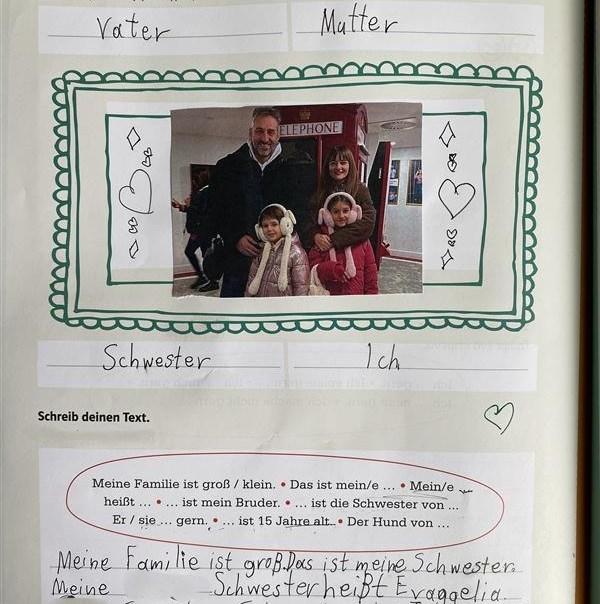 Vater Mutter
TELEPHONE
Schwester Ich
Schreib deinen Text.
Meine Familie ist groß / klein. • Das ist mein/e ... • Mein/e
heißt ... • ... ist mein Bruder. • ... ist die Schwester von ...
Er / sie ... gern. • ... ist 15 Jahre alt. • Der Hund von ...
Meine Familie ist groß. Das ist meine Schwester.
Meine Schwester heißt Evaggelia.